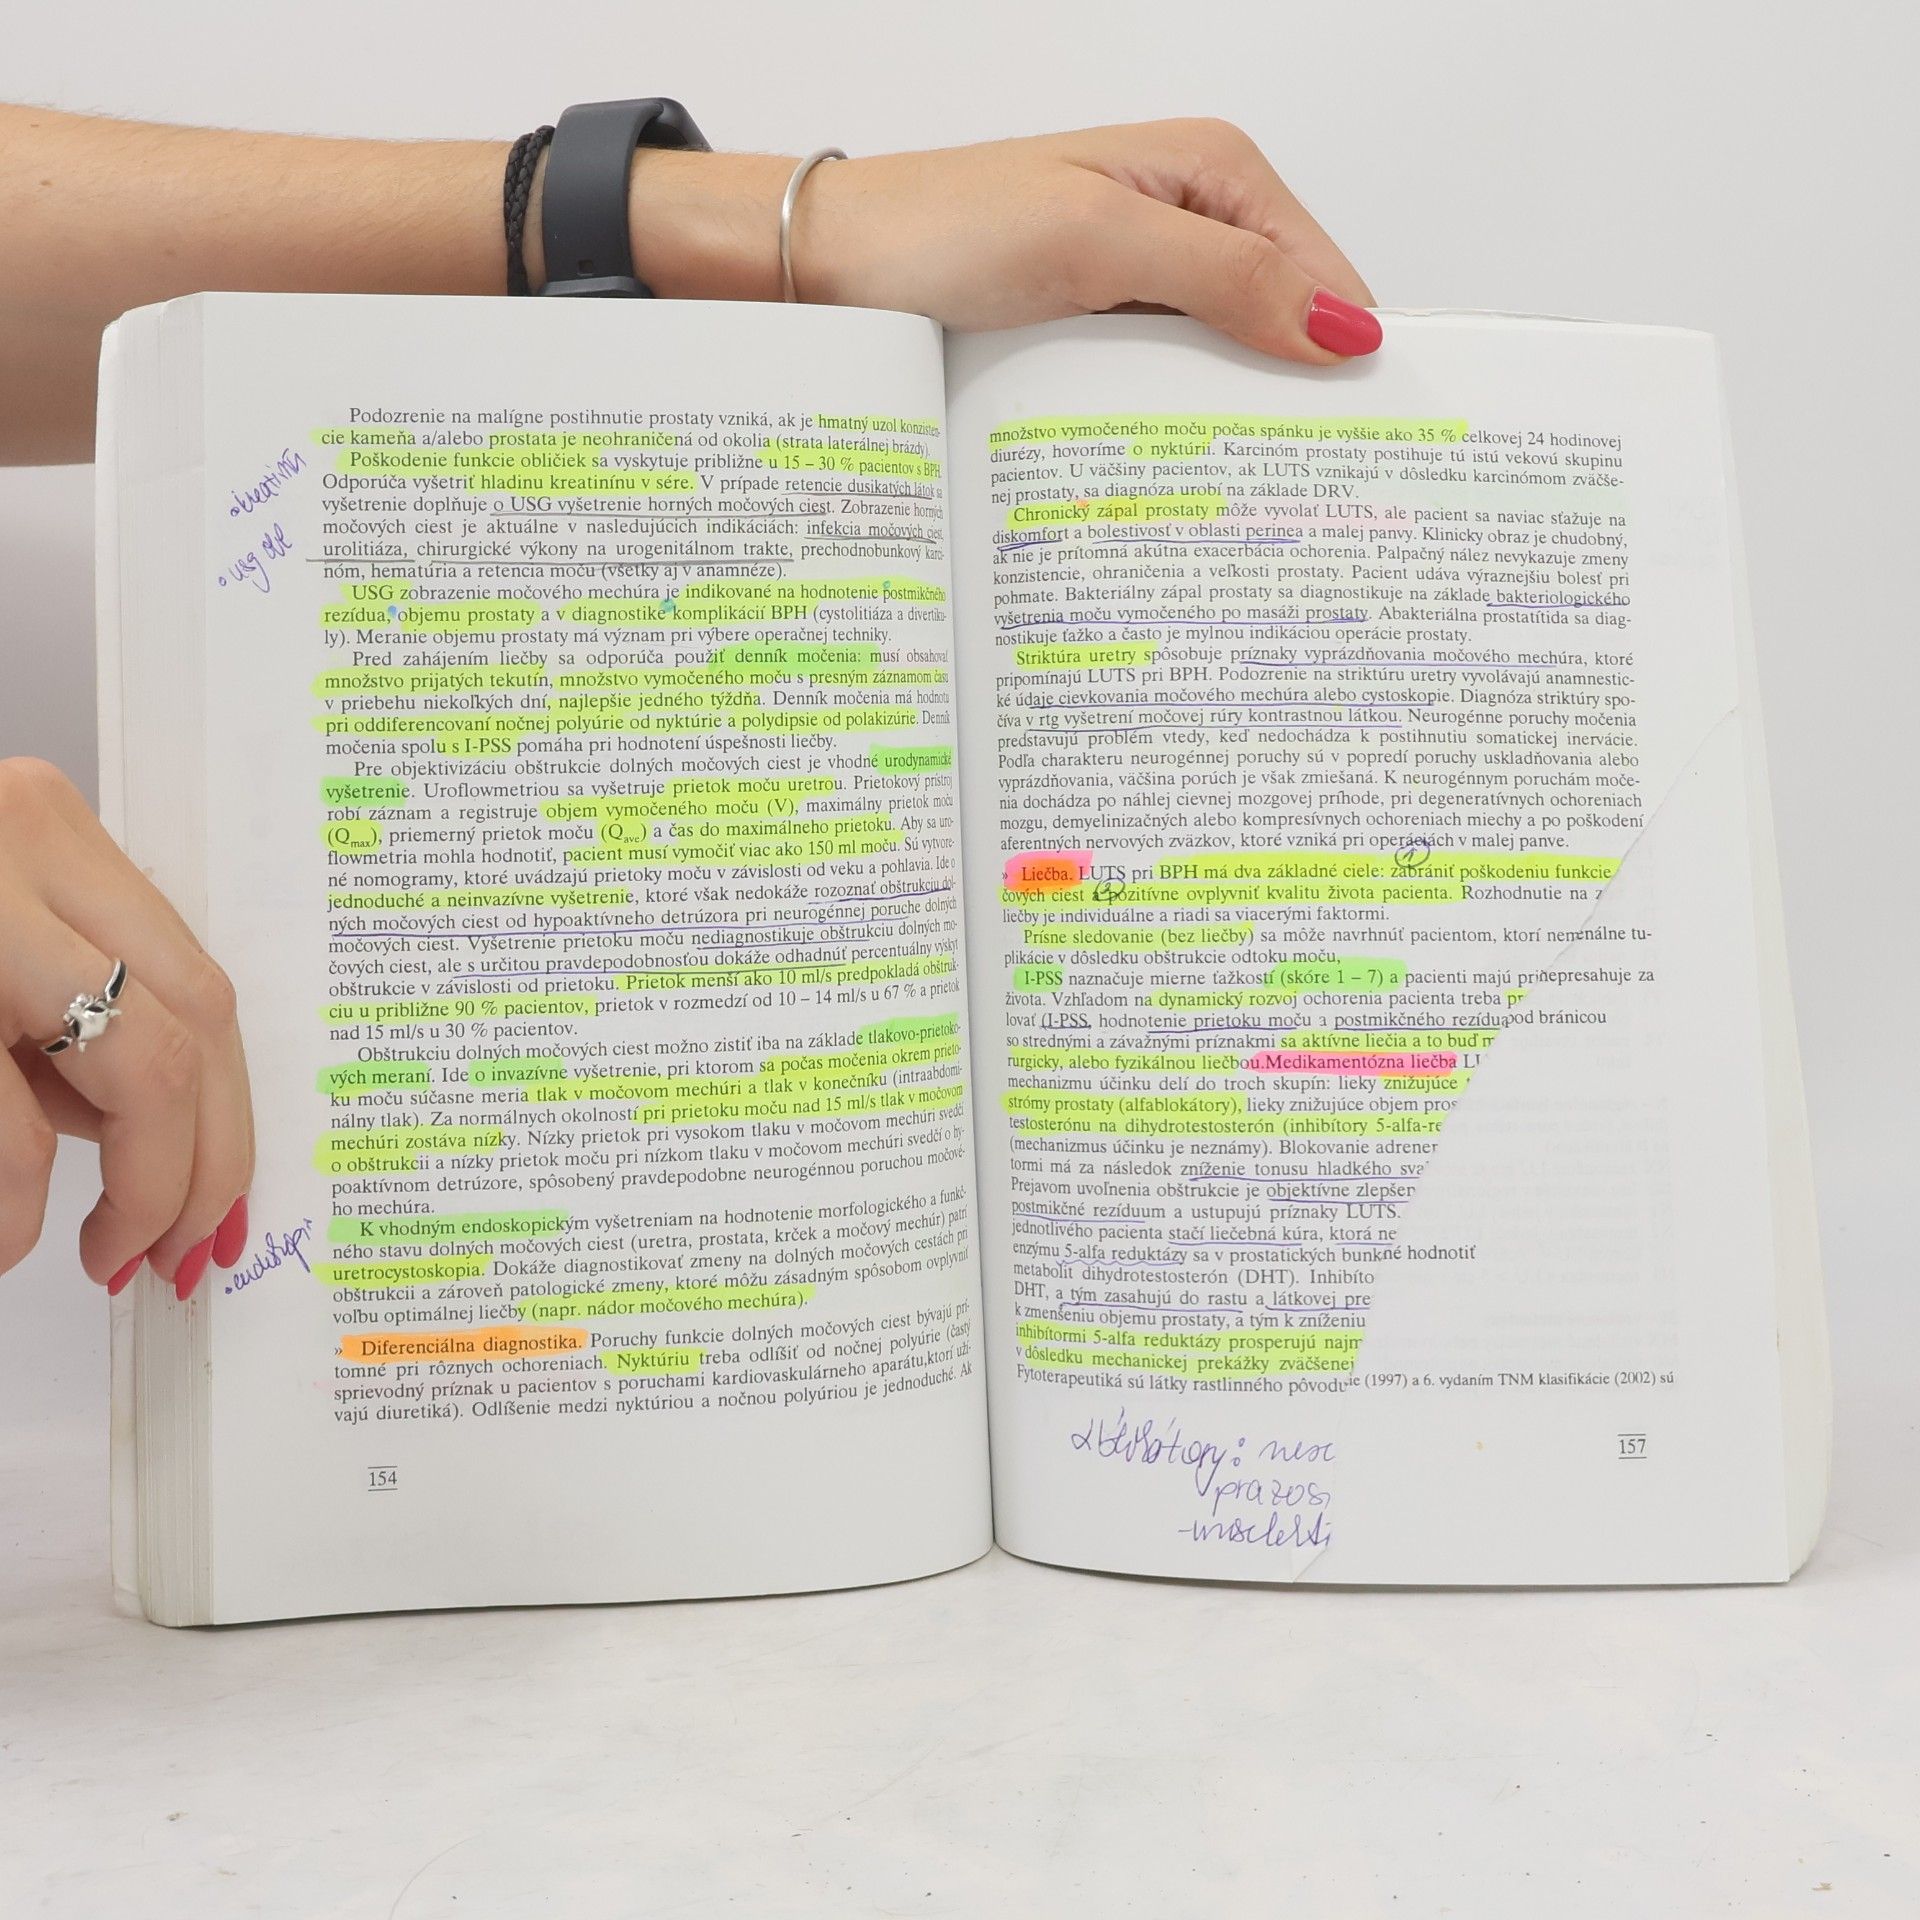 Podozrenie na malígne postihnutie prostaty vzniká, ak je hmatný uzol konzisten-
cie kameňa a/alebo prostata je neohraničená od okolia (strata laterálnej brázdy).
Poškodenie funkcie obličiek sa vyskytuje približne u 15 – 30 % pacientov s BPH.
Odporúča vyšetriť hladinu kreatinínu v sére. V prípade retencie dusikatých látok sa
vyšetrenie doplňuje o USG vyšetrenie horných močových ciest. Zobrazenie horných
močových ciest je aktuálne v nasledujúcich indikáciách: infekcia močových ciest,
urolitiáza, chirurgické výkony na urogenitálnom trakte, prechodnobunkový karci-
nóm, hematúria a retencia moču (všetky aj v anamnéze).
USG zobrazenie močového mechúra je indikované na hodnotenie postmikčného
rezídua, objemu prostaty a v diagnostike komplikácií BPH (cystolitiáza a divertiku-
ly). Meranie objemu prostaty má význam pri výbere operačnej techniky.
Pred zahájením liečby sa odporúča použiť denník močenia: musí obsahovať
množstvo prijatých tekutín, množstvo vymočeného moču s presným záznamom času
v priebehu niekoľkých dní, najlepšie jedného týždňa. Denník močenia má hodnotu
pri oddiferencovaní nočnej polyúrie od nyktúrie a polydipsie od polakizúrie. Denník
močenia spolu s I-PSS pomáha pri hodnotení úspešnosti liečby.
Pre objektivizáciu obštrukcie dolných močových ciest je vhodné urodynamické
vyšetrenie. Uroflowmetriou sa vyšetruje prietok moču uretrou. Prietokový prístroj
robí záznam a registruje objem vymočeného moču (V), maximálny prietok moču
(Qmax), priemerný prietok moču (Qave) a čas do maximálneho prietoku. Aby sa uro-
flowmetria mohla hodnotiť, pacient musí vymočiť viac ako 150 ml moču. Sú vytvore-
né nomogramy, ktoré uvádzajú prietoky moču v závislosti od veku a pohlavia. Ide o
jednoduché a neinvazívne vyšetrenie, ktoré však nedokáže rozoznať obštrukciu dol-
ných močových ciest od hypoaktívneho detrúzora pri neurogénnej poruche dolných
močových ciest. Vyšetrenie prietoku moču nediagnostikuje obštrukciu dolných mo-
čových ciest, ale s určitou pravdepodobnosťou dokáže odhadnúť percentuálny výskyt
obštrukcie v závislosti od prietoku. Prietok menší ako 10 ml/s predpokladá obštruk-
ciu u približne 90 % pacientov, prietok v rozmedzí od 10 – 14 ml/s u 67 % a prietok
nad 15 ml/s u 30 % pacientov.
Obštrukciu dolných močových ciest možno zistiť iba na základe tlakovo-prietoko-
vých meraní. Ide o invazívne vyšetrenie, pri ktorom sa počas močenia okrem prieto-
ku moču súčasne meria tlak v močovom mechúri a tlak v konečníku (intraabdomi-
nálny tlak). Za normálnych okolností pri prietoku moču nad 15 ml/s tlak v močovom
mechúri zostáva nízky. Nízky prietok pri vysokom tlaku v močovom mechúri svedčí
o obštrukcii a nízky prietok moču pri nízkom tlaku v močovom mechúri svedčí o hy-
poaktívnom detrúzore, spôsobený pravdepodobne neurogénnou poruchou močové-
ho mechúra.
K vhodným endoskopickým vyšetreniam na hodnotenie morfologického a funkč-
ného stavu dolných močových ciest (uretra, prostata, krček a močový mechúr) patrí
uretrocystoskopia. Dokáže diagnostikovať zmeny na dolných močových cestách pri
obštrukcii a zároveň patologické zmeny, ktoré môžu zásadným spôsobom ovplyvniť
voľbu optimálnej liečby (napr. nádor močového mechúra).
» Diferenciálna diagnostika. Poruchy funkcie dolných močových ciest bývajú prí-
tomné pri rôznych ochoreniach. Nyktúriu treba odlíšiť od nočnej polyúrie (častý
sprievodný príznak u pacientov s poruchami kardiovaskulárneho aparátu,ktorí uží-
vajú diuretiká). Odlíšenie medzi nyktúriou a nočnou polyúriou je jednoduché. Ak
154
•kreatinín
•usg
•endoskopi
množstvo vymočeného moču počas spánku je vyššie ako 35 % celkovej 24 hodinovej
diurézy, hovoríme o nyktúrii. Karcinóm prostaty postihuje tú istú vekovú skupinu
pacientov. U väčšiny pacientov, ak LUTS vznikajú v dôsledku karcinómom zväčše-
nej prostaty, sa diagnóza urobí na základe DRV.
Chronický zápal prostaty môže vyvolať LUTS, ale pacient sa naviac sťažuje na
diskomfort a bolestivosť v oblasti perinea a malej panvy. Klinicky obraz je chudobný,
ak nie je prítomná akútna exacerbácia ochorenia. Palpačný nález nevykazuje zmeny
konzistencie, ohraničenia a veľkosti prostaty. Pacient udáva výraznejšiu bolesť pri
pohmate. Bakteriálny zápal prostaty sa diagnostikuje na základe bakteriologického
vyšetrenia moču vymočeného po masáži prostaty. Abakteriálna prostatítida sa diag-
nostikuje ťažko a často je mylnou indikáciou operácie prostaty.
Striktúra uretry spôsobuje príznaky vyprázdňovania močového mechúra, ktoré
pripomínajú LUTS pri BPH. Podozrenie na striktúru uretry vyvolávajú anamnestic-
ké údaje cievkovania močového mechúra alebo cystoskopie. Diagnóza striktúry spo-
číva v rtg vyšetrení močovej rúry kontrastnou látkou. Neurogénne poruchy močenia
predstavujú problém vtedy, keď nedochádza k postihnutiu somatickej inervácie.
Podľa charakteru neurogénnej poruchy sú v popredí poruchy uskladňovania alebo
vyprázdňovania, väčšina porúch je však zmiešaná. K neurogénnym poruchám moče-
nia dochádza po náhlej cievnej mozgovej príhode, pri degeneratívnych ochoreniach
mozgu, demyelinizačných alebo kompresívnych ochoreniach miechy a po poškodení
aferentných nervových zväzkov, ktoré vzniká pri operáciách v malej panve.
» Liečba. LUTS pri BPH má dva základné ciele: zabrániť poškodeniu funkcie
čových ciest a pozitívne ovplyvniť kvalitu života pacienta. Rozhodnutie na z
liečby je individuálne a riadi sa viacerými faktormi.
Prísne sledovanie (bez liečby) sa môže navrhnúť pacientom, ktorí nemenálne tu-
plikácie v dôsledku obštrukcie odtoku moču,
I-PSS naznačuje mierne ťažkostí (skóre 1 – 7) a pacienti majú priňepresahuje za
života. Vzhľadom na dynamický rozvoj ochorenia pacienta treba pr
lovať (I-PSS, hodnotenie prietoku moču a postmikčného rezídua pod bránicou
so strednými a závažnými príznakmi sa aktívne liečia a to buď m
rurgicky, alebo fyzikálnou liečbou.Medikamentózna liečba LU
mechanizmu účinku delí do troch skupín: lieky znižujúce
strómy prostaty (alfablokátory), lieky znižujúce objem pros
testosterónu na dihydrotestosterón (inhibítory 5-alfa-re
(mechanizmus účinku je neznámy). Blokovanie adrener
tormi má za následok zníženie tonusu hladkého sva
Prejavom uvoľnenia obštrukcie je objektívne zlepšen
postmikčné rezíduum a ustupujú príznaky LUTS.
jednotlivého pacienta stačí liečebná kúra, ktorá ne
enzýmu 5-alfa reduktázy sa v prostatických bunkné hodnotiť
metabolit dihydrotestosterón (DHT). Inhibíto
DHT, a tým zasahujú do rastu a látkovej pre
k zmenšeniu objemu prostaty, a tým k zníženiu
inhibítormi 5-alfa reduktázy prosperujú najm
v dôsledku mechanickej prekážky zväčšenej
Fytoterapeutiká sú látky rastlinného pôvodu ie (1997) a 6. vydaním TNM klasifikácie (2002) sú
1
2
prazos
157